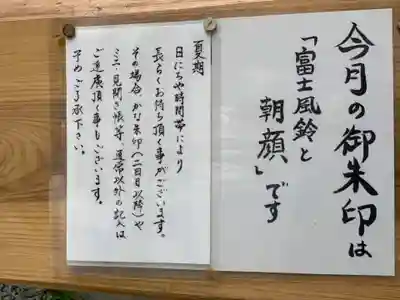 今月の御朱印は
「富士風鈴と
朝顔」です
夏期
日にちや時間帯により
長らくお待ち頂く事がございます。
その場合、かな朱印(二回目以降)や
ミニ・見開き帳等、通常以外の記入は
ご遠慮頂く事もございます。
予めご了承下さい。